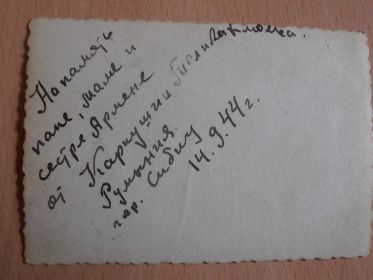 На память
папе, маме и
сестре Армене
от
Румыния
гор. Сибиу
14.9.44 г.